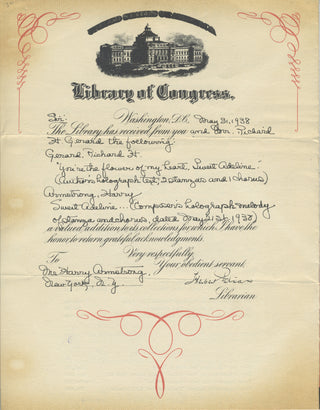 Library of Congress.
Washington, D.C. May 31, 1938
Sir:
The Library has received from you and Mr. Richard
H. Gerard the following
Gerard, Richard H.
"You're the flower of my heart, Sweet Adeline"
(Author's holograph text, 2 stanzas and chorus)
Armstrong, Harry
Sweet Adeline... (Composer's holograph melody
of stanza and chorus, dated May 31st, 1938)
a valued addition to its collections for which I have the
honor to return grateful acknowledgments.
Very respectfully,
Your obedient servant,
To
Mr. Harry Armstrong,
New York, N.Y.
Librarian